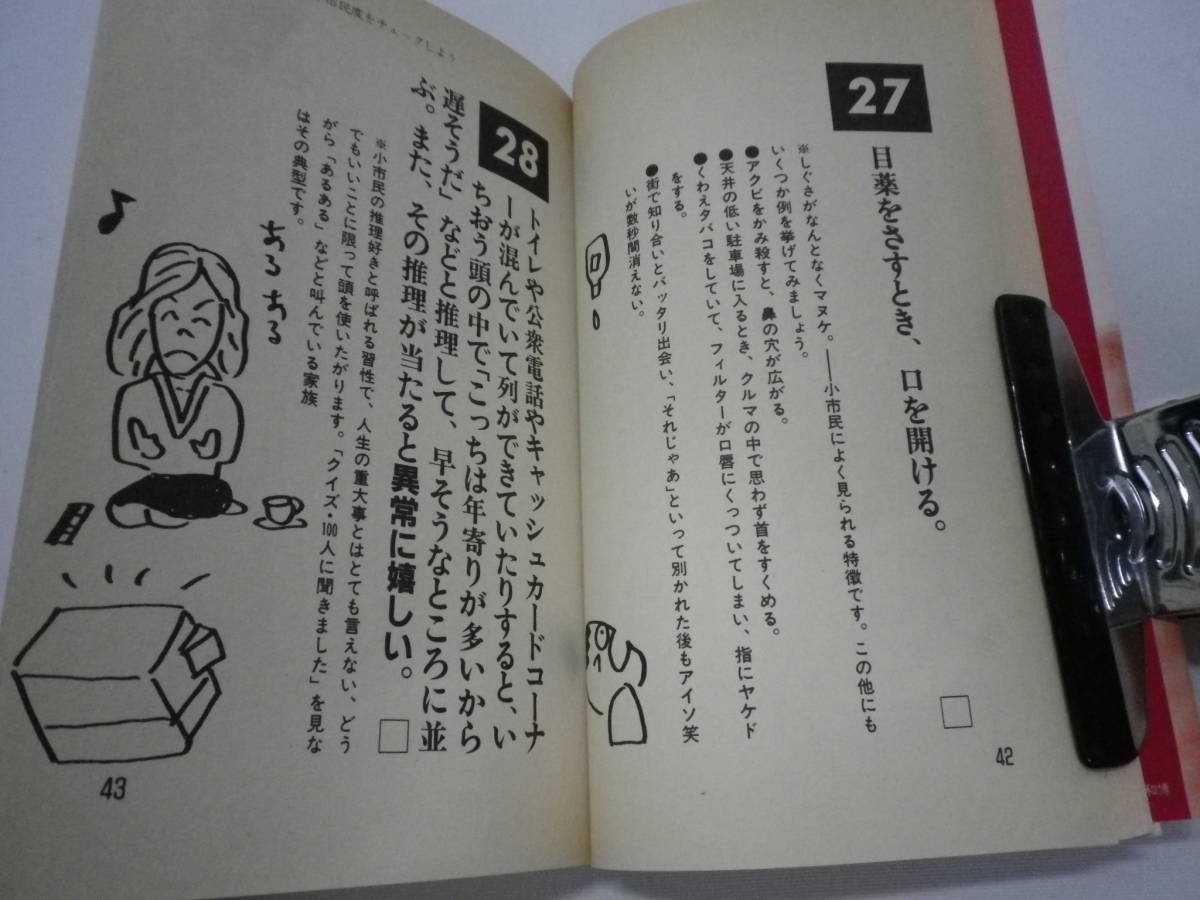 27
目薬をさすとき、口を開ける。
※しぐさがなんとなくマヌケ。――小市民によく見られる特徴です。この他にも
いくつか例を挙げてみましょう。
●アクビをかみ殺すと、鼻の穴が広がる。
●天井の低い駐車場に入るとき、クルマの中で思わず首をすくめる。
●くわえタバコをしていて、フィルターが口唇にくっついてしまい、指にヤケド
をする。
●街で知り合いとバッタリ出会い、「それじゃあ」といって別かれた後もアイソ笑
いが数秒間消えない。
42
市民度をチェックしよう
28
トイレや公衆電話やキャッシュカードコーナ
ーが混んでいて列ができていたりすると、い
ちおう頭の中で「こっちは年寄りが多いから
遅そうだ」などと推理して、早そうなところに並
ぶ。また、その推理が当たると異常に嬉しい。
※小市民の推理好きと呼ばれる習性で、人生の重大事とはとても言えない、どう
でもいいことに限って頭を使いたがります。「クイズ・100人に聞きました」を見な
がら「あるある」などと叫んでいる家族
はその典型です。
あるある
43